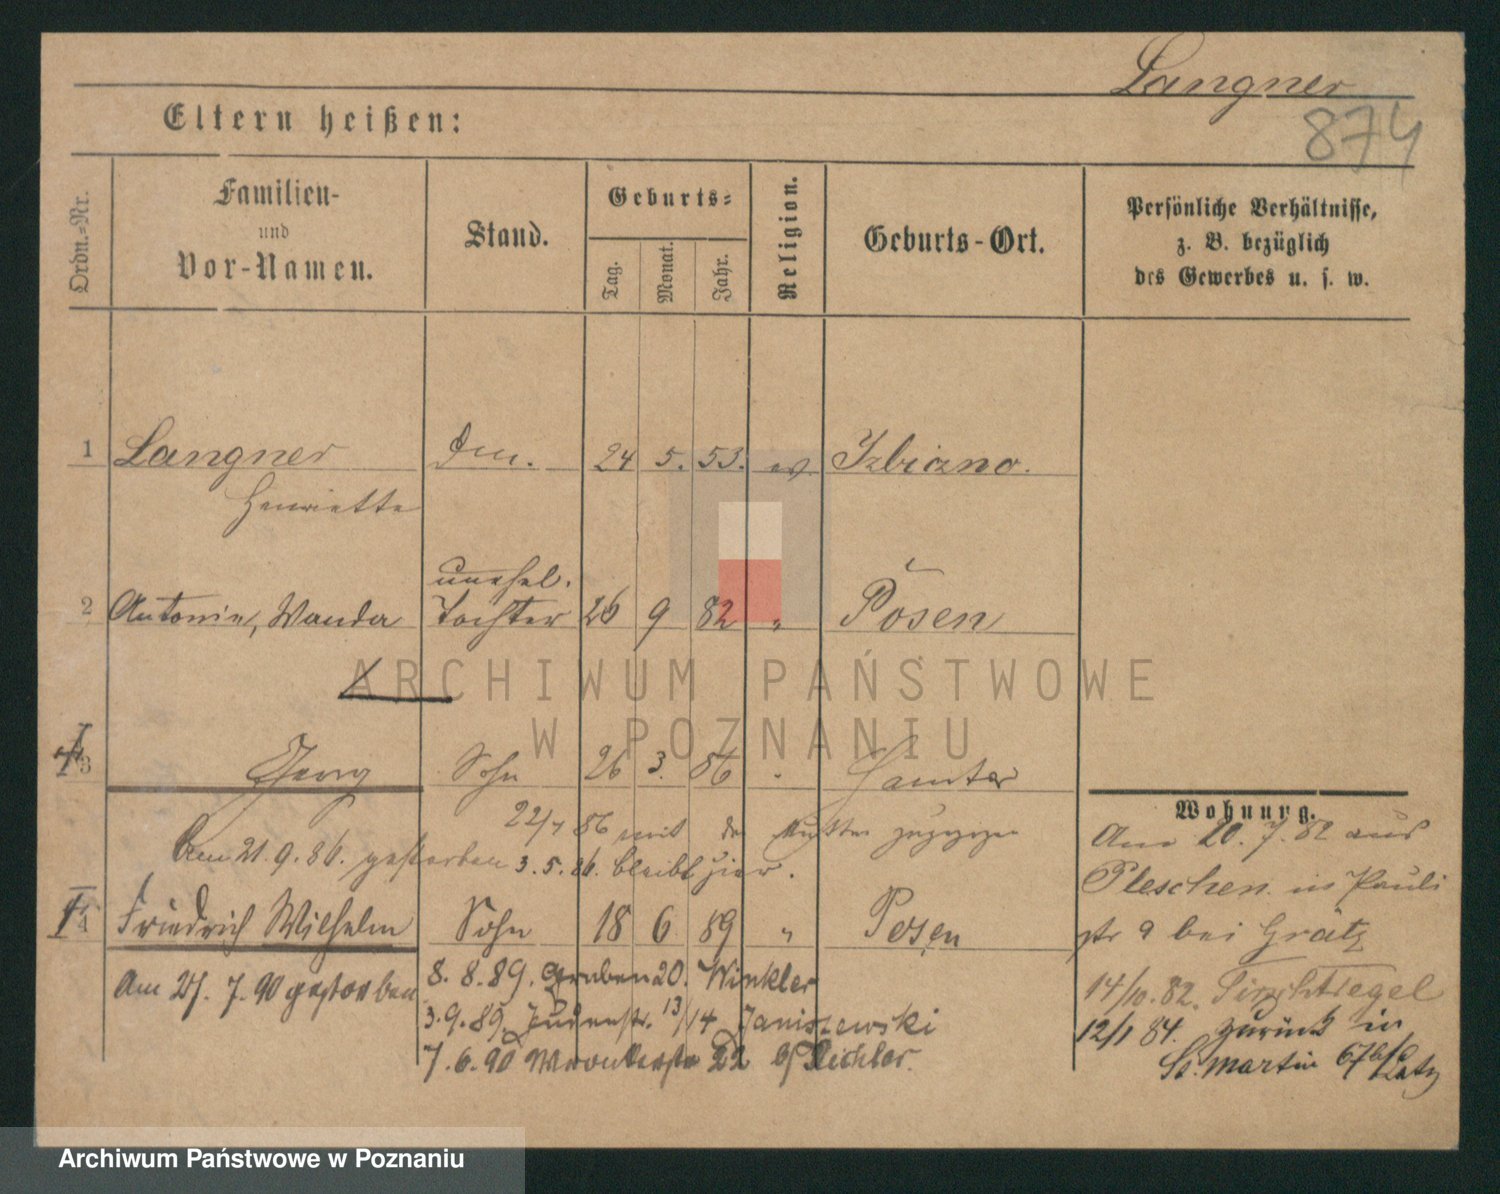 Langner
874
Eltern heißen:
Ordn.-Nr.
Familien-
und
Vor-Namen.
Stand.
Geburts-
Tag.
Monat.
Jahr.
Religion.
Geburts-Ort.
Persönliche Verhältnisse,
z. B. bezüglich
des Gewerbes u. s. w.
1 Langner 24 5. 53. ev.
Henriette
unehel.
2 Antonie, Wanda Tochter 26 9 82 " Posen
ARCHIWUM PAŃSTWOWE
W POZNANIU
3 Georg Sohn 26 3. 86 Samter
Wohnung.
22/7 86 mit der Mutter zugezogen
Am 21. 9. 86. gestorben 3. 5. 86. bleibt hier.
Am 20. 7. 82 aus
Pleschen in Pauli
str 9 bei Grätz
4 Friedrich Wilhelm Sohn 18 6 89 " Posen
Am 7. 90 gestorben
8. 8. 89. Graben 20. Winkler
3. 9. 89 Judenstr. 13/14 Janiszewski
7. 6. 90 Wronkerstr 22 b/
14/10. 82. Tirschtiegel
12/1 84. zurück in
St. Martin 67 b/
Archiwum Państwowe w Poznaniu